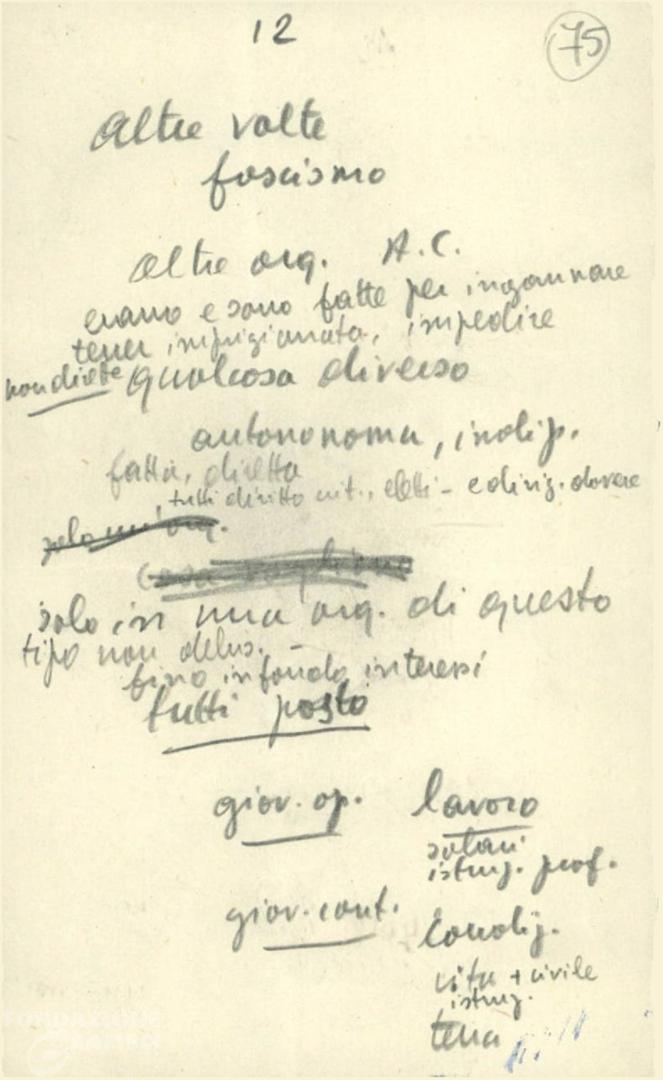 12
75
Altre volte
fascismo
altre org. A.C.
erano e sono fatte per ingannare
tener imprigionata, impedire
non dirette qualcosa diverso
autononoma, indip.
fatta, diretta
tutti diritto int., eletti - e diriz. dovere
solo un'org.
solo in una org. di questo
tipo non delus.
fino in fondo interessi
tutti posto
giov. op. lavoro
salari
istruz. prof.
giov. cont. Condiz.
vita + civile
istruz.
terra
FONDAZIONE